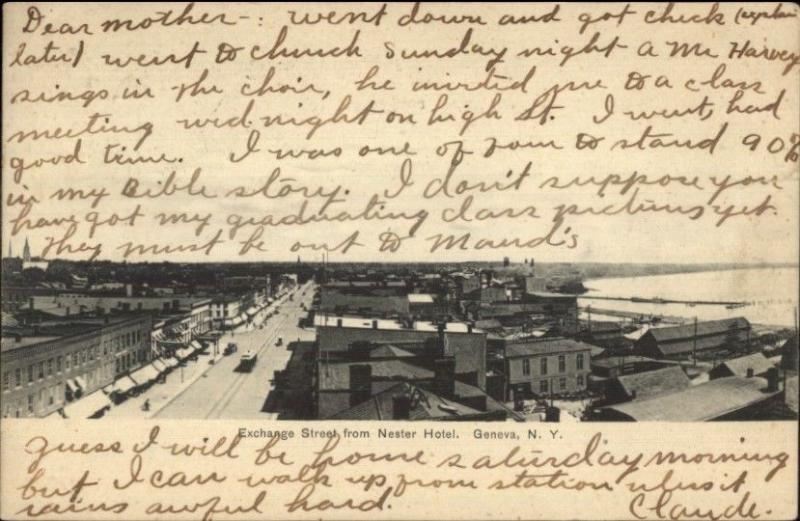 Dear mother-: went down and got check (explain
later) went to chuch Sunday night a Mr Harvey
sings in the choir, he invited me to a class
meeting wed. night on high St. I went, had
good time. I was one of four to stand 90%
in my Bible story. I don't suppose you
have got my graduating class pictures yet.
They must be out to Maud's
Exchange Street from Nester Hotel. Geneva, N. Y.
Guess I will be home saturday morning
but I can walk up from station unless it
rains awful hard. Claude.